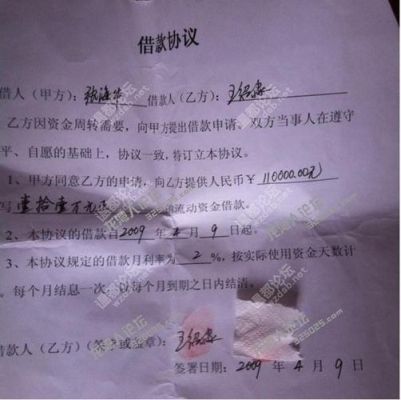 借款协议
借人(甲方):张海 借款人(乙方):王
乙方因资金周转需要,向甲方提出借款申请。双方当事人在遵守
平、自愿的基础上,协议一致,特订立本协议。
1、甲方同意乙方的申请,向乙方提供人民币¥110000.00元)
写壹拾壹万元 流动资金借款。
2、本协议的借款自2009年4月9日起。
3、本协议规定的借款月利率为2%,按实际使用资金天数计
。每个月结息一次,以每个月到期之日内结清。
借款人(乙方)(签字或盖章):王
签署日期:2009年4月9日